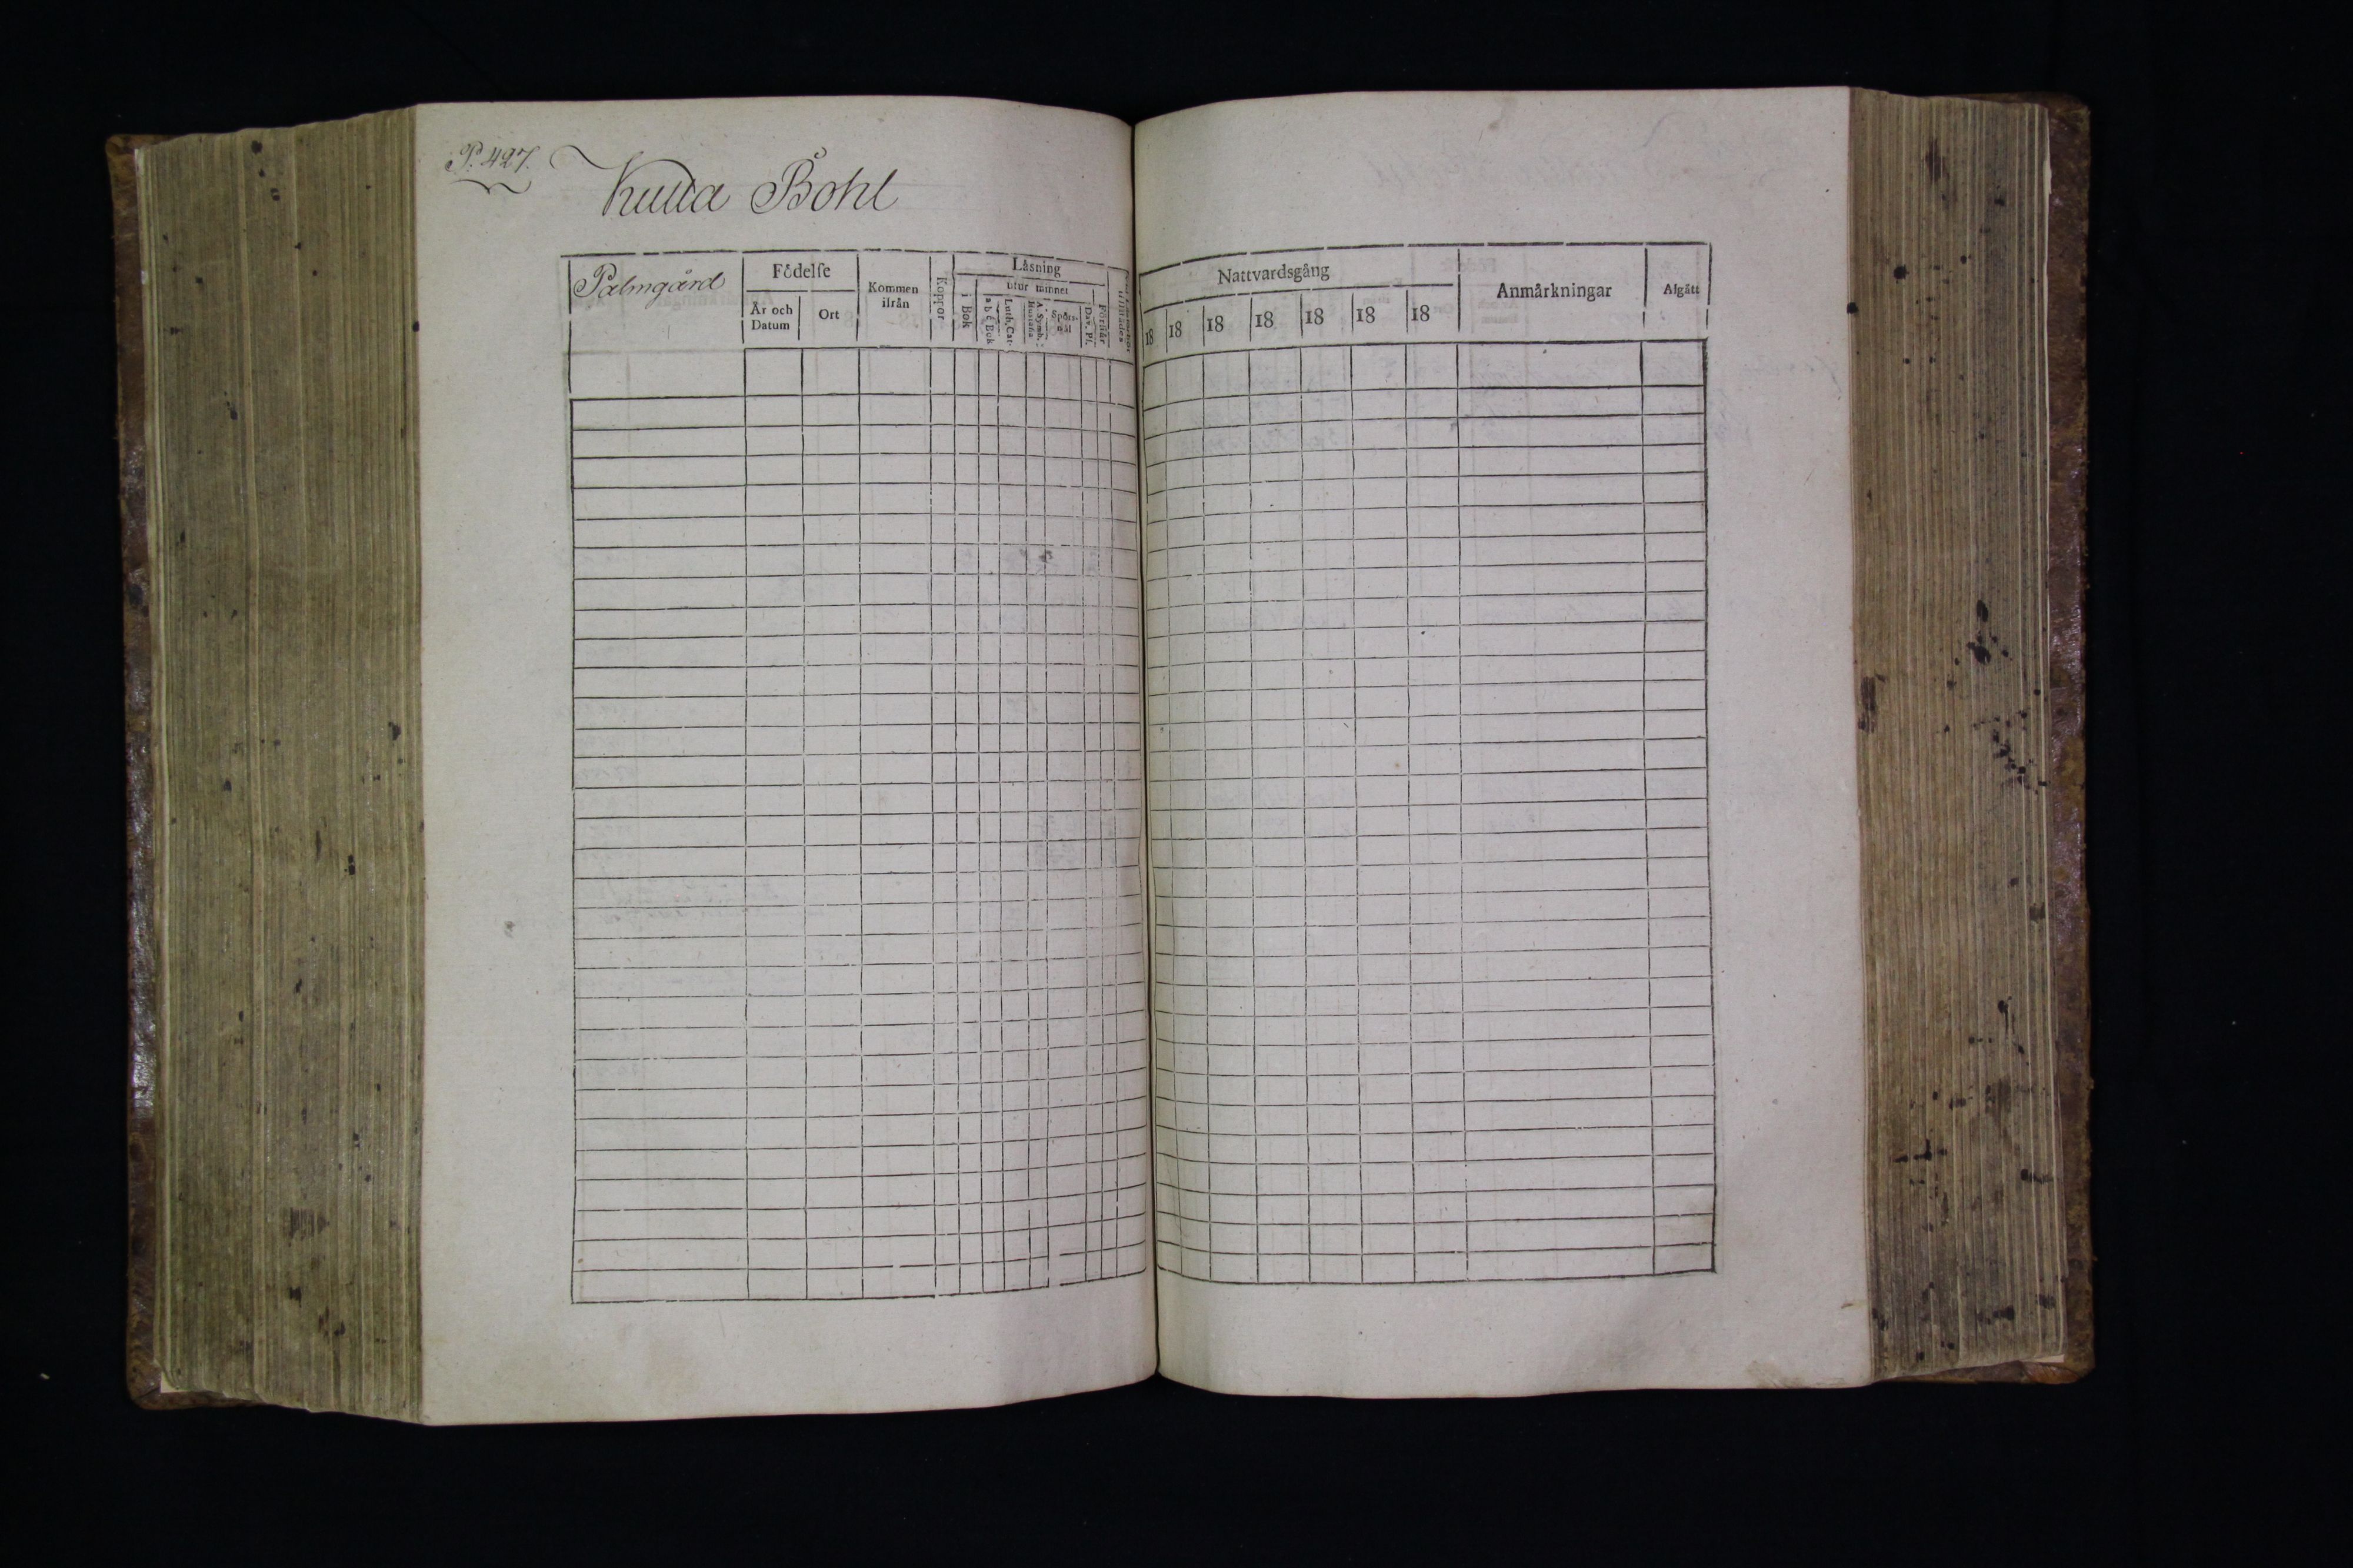 P. 427.
Kuua Bohl
Palmgård
Födelse
År och
Datum
Ort
Kommen
ifrån
Koppor
Läsning
utur minnet
i Bok
a b c Bok
Luth. Cat.
A. Symb.
Hustafla
Spörs-
mål
Dav. Ps.
Förstår
Nattvardsgång
18 18 18 18 18 18 18
Anmärkningar
Afgått